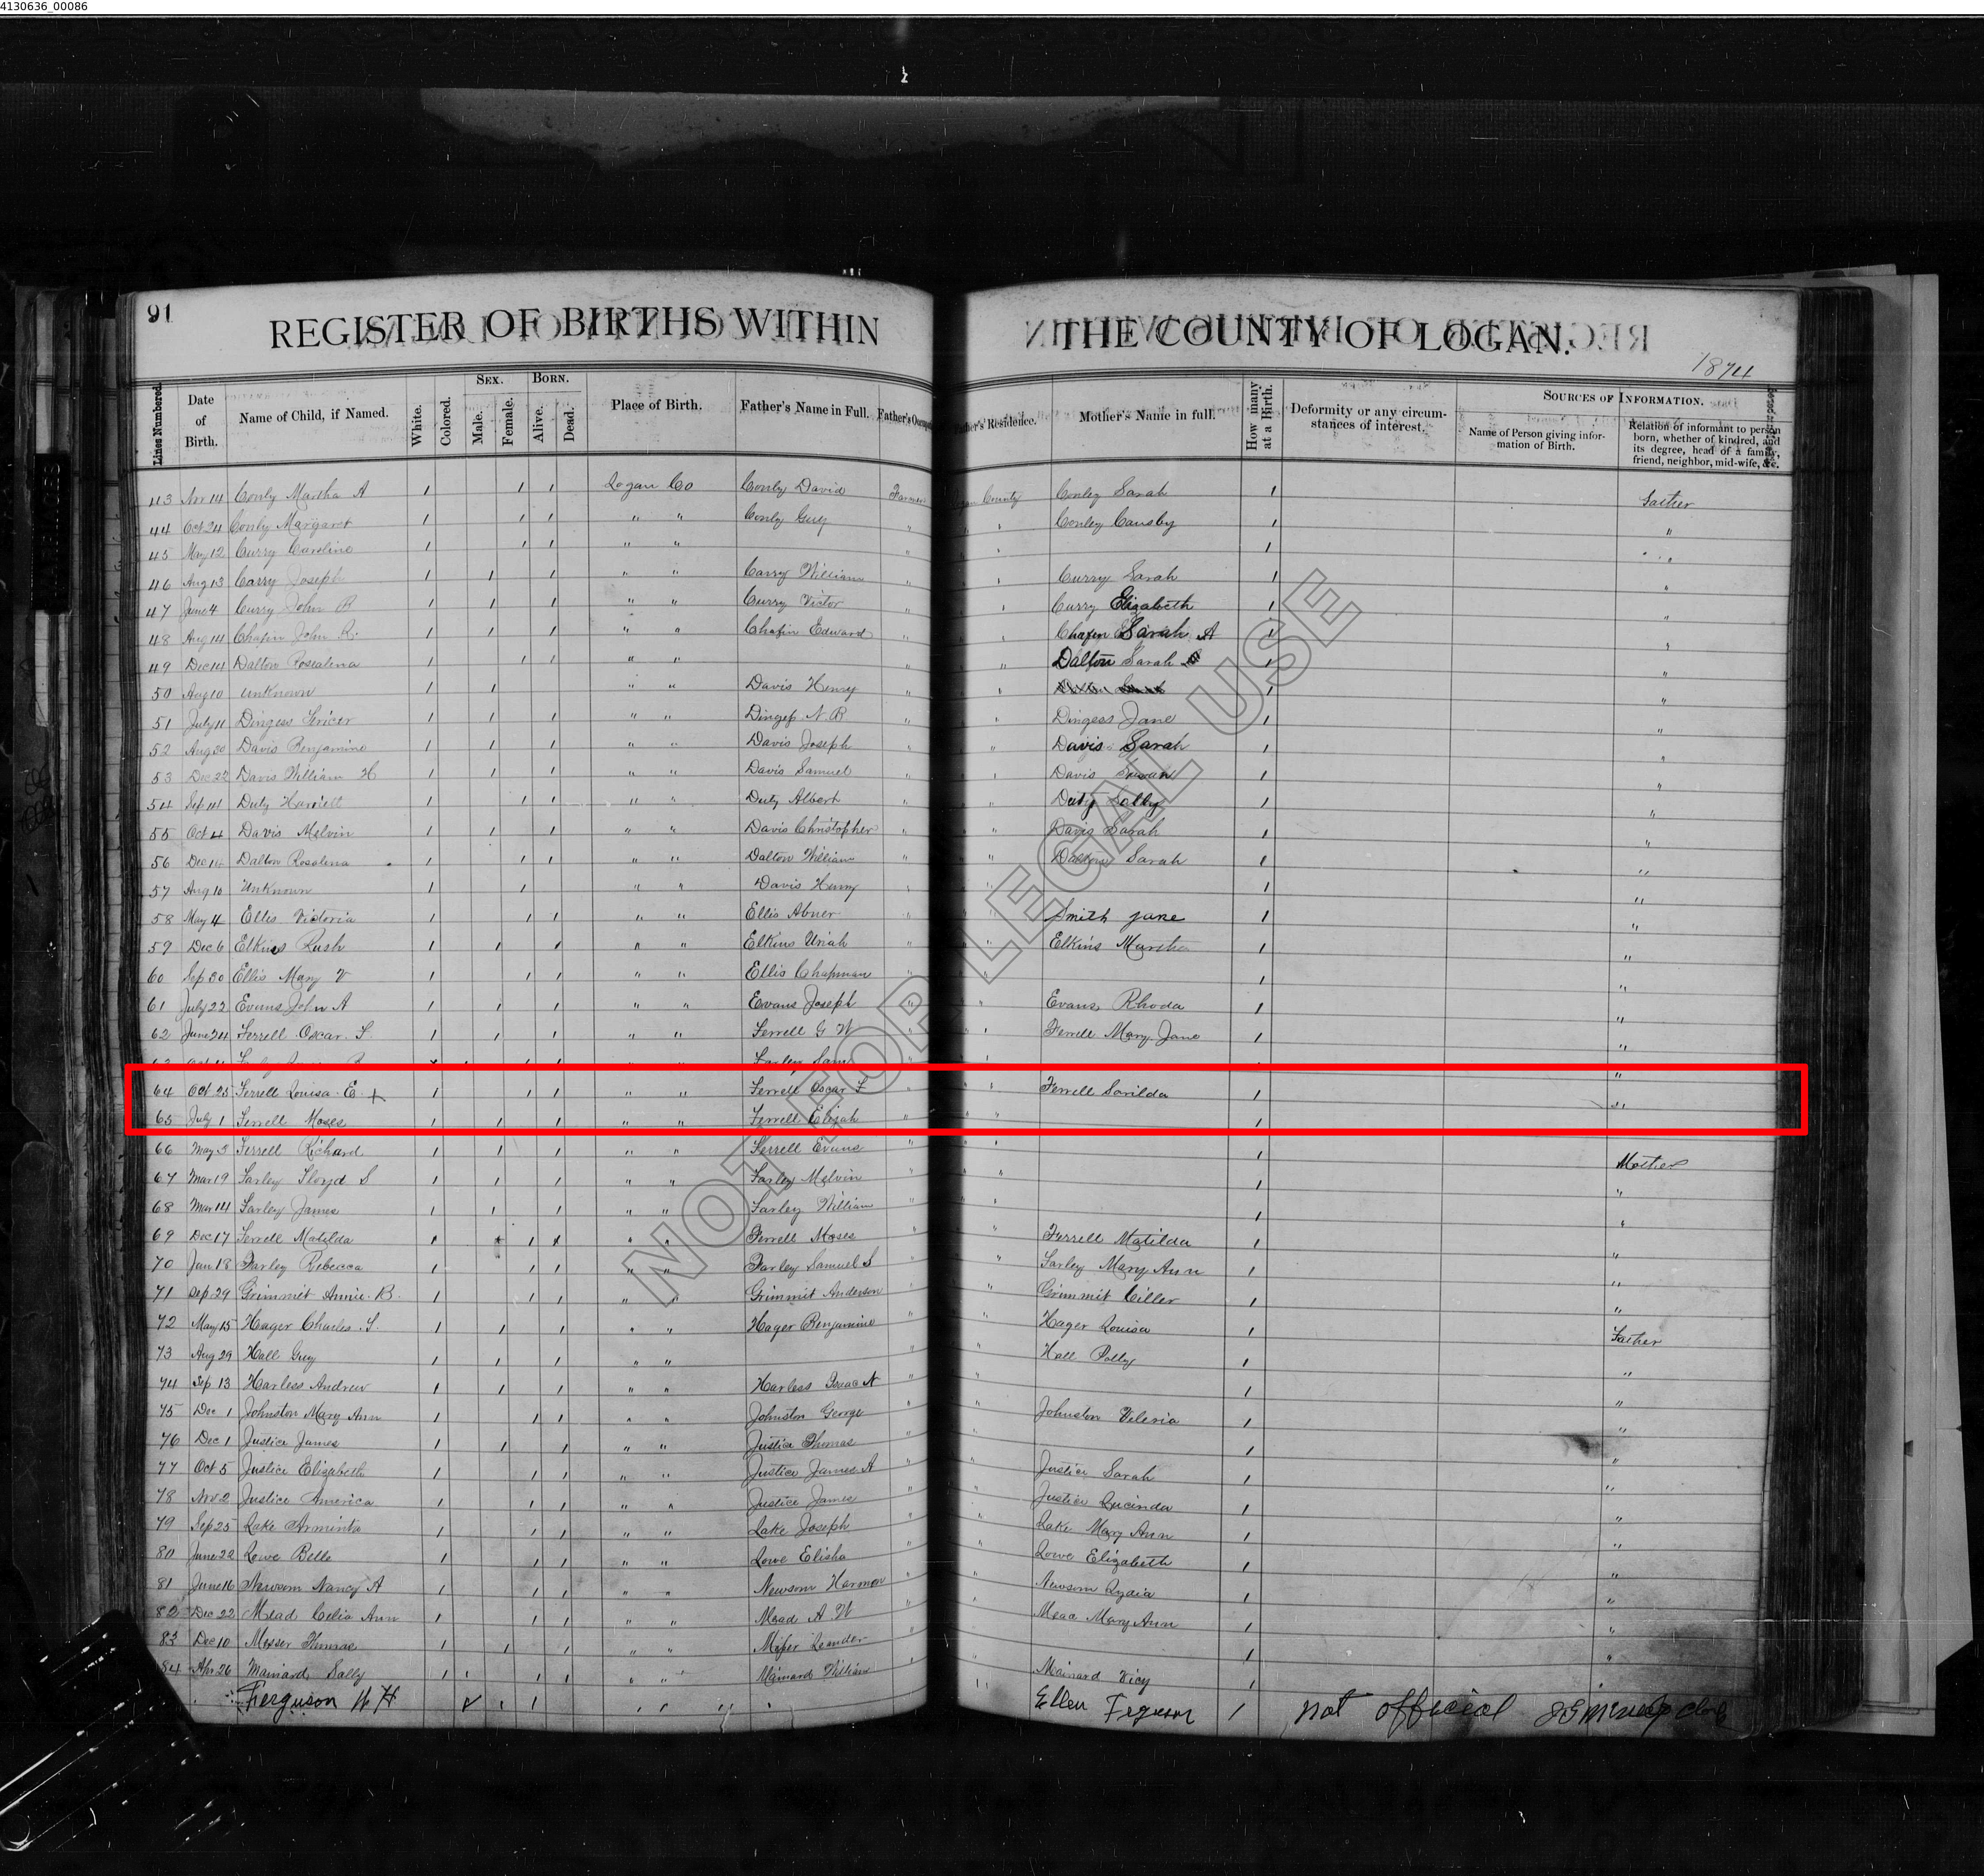 4130636_00086
91
REGISTER OF BIRTHS WITHIN THE COUNTY OF LOGAN.
1874
Lines Numbered. Date of Birth. Name of Child, if Named. White. Colored. Sex. Male. Female. Born. Alive. Dead. Place of Birth. Father's Name in Full. Father's Residence. Mother's Name in full. How many at a Birth. Deformity or any circumstances of interest. Sources of Information. Name of Person giving information of Birth. Relation of informant to person born, whether of kindred, and its degree, head of a family, friend, neighbor, mid-wife, &c.
43 Nov 14 Conly Martha A 1 1 1 Logan Co Conly David Farmer County Conley Sarah 1 Father
44 Oct 24 Conly Margaret 1 1 1 " " Conly Guy " " Conley Cansby 1 "
45 May 12 Curry Caroline 1 1 1 " " " " 1 "
46 Aug 13 Carry Joseph 1 1 1 " " Carry William " " Curry Sarah 1 "
47 June 4 Curry John R 1 1 1 " " Curry Victor " " Curry Elizabeth 1 "
48 Aug 14 Chafin John R. 1 1 1 " " Chafin Edward " " Chafin Sarah A 1 "
49 Dec 14 Dalton Rosealena 1 1 1 " " " " Dalton Sarah 1 "
50 Aug 10 unknown 1 1 " " Davis Henry " " 1 "
51 July 11 Dingess 1 1 1 " " Dingess N B " " Dingess Jane 1 "
52 Aug 30 Davis Benjamine 1 1 1 " " Davis Joseph " " Davis Sarah 1 "
53 Dec 22 Davis William H 1 1 1 " " Davis Samuel " " Davis Susan 1 "
54 Sep 14 Duty Harriett 1 1 1 " " Duty Albert " " Duty Solly 1 "
55 Oct 4 Davis Melvin 1 1 1 " " Davis Christopher " " Davis Sarah 1 "
56 Dec 14 Dalton Rosalena 1 1 1 " " Dalton William " " Dalton Sarah 1 "
57 Aug 10 Unknown 1 1 " " Davis Henry " " 1 "
58 May 4 Ellis Victoria 1 1 1 " " Ellis Abner " " Smith jane 1 "
59 Dec 6 Elkins Rush 1 1 1 " " Elkins Uriah " " Elkins Martha 1 "
60 Sep 30 Ellis Mary V 1 1 1 " " Ellis Chapman " " 1 "
61 July 22 Evans John A 1 1 1 " " Evans Joseph " " Evans Rhoda 1 "
62 June 24 Ferrell Oscar F. 1 1 1 " " Ferrell G W " " Ferrell Mary Jane 1 "
63 Farley Saml
64 Oct 25 Ferrell Louisa E. + 1 1 1 " " Ferrell Oscar F " " Ferrell Sorilda 1 "
65 July 1 Ferrell Moses 1 1 1 " " Ferrell Elijah " " 1 "
66 May 3 Ferrell Richard 1 1 1 " " Ferrell Evans " " 1 Mother
67 Mar 19 Farley Floyd S 1 1 1 " " Farley Melvin " " 1 "
68 Mar 14 Farley James 1 1 1 " " Farley William " " 1 "
69 Dec 17 Ferrell Matilda 1 1 1 " " Ferrell Moses " " Ferrell Matilda 1 "
70 Jan 18 Farley Rebecca 1 1 1 " " Farley Samuel S " " Farley Mary Ann 1 "
71 Sep 29 Grimmit Annie B. 1 1 1 " " Grimmit Anderson " " Grimmit Ciller 1 "
72 May 15 Hager Charles S. 1 1 1 " " Hager Benjamine " " Hager Louisa 1 Father
73 Aug 29 Hall Guy 1 1 1 " " " Hall Polly 1 "
74 Sep 13 Harless Andrew 1 1 1 " " Harless Isaac N " " 1 "
75 Dec 1 Johnston Mary Ann 1 1 1 " " Johnston George " " Johnston Veleria 1 "
76 Dec 1 Justice James 1 1 1 " " Justice Thomas " 1 "
77 Oct 5 Justice Elizabeth 1 1 1 " " Justice James A " " Justice Sarah 1 "
78 Nov 2 Justice America 1 1 1 " " Justice James " " Justice Lucinda 1 "
79 Sep 25 Lake Arminta 1 1 1 " " Lake Joseph " " Lake Mary Ann 1 "
80 June 22 Lowe Belle 1 1 1 " " Lowe Elisha " " Lowe Elizabeth 1 "
81 June 16 Newsom Nancy A 1 1 1 " " Newsom Harmon " " Newsom Lydia 1 "
82 Dec 22 Mead Celia Ann 1 1 1 " " Mead A W " Mead Mary Ann 1 "
83 Dec 10 Messer Thomas 1 1 1 " " Messer Leander " 1 "
84 Apr 26 Mainard Sally 1 1 1 " " Mainard William " Mainard Vicy 1
Ferguson W H 1 1 " " " Ellen Ferguson 1 not official
NOT FOR LEGAL USE